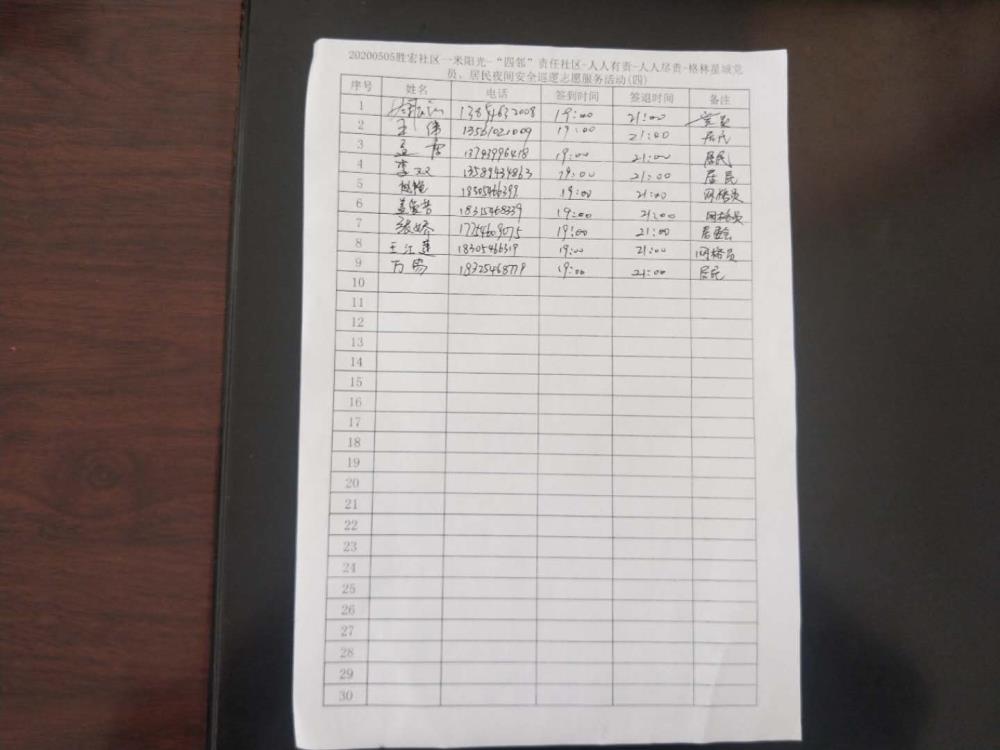 20200505胜宏社区一米阳光-“四邻”责任社区-人人有责-人人尽责-格林星城党
员、居民夜间安全巡逻志愿服务活动(四)
序号 姓名 电话 签到时间 签退时间 备注
1 19:00 21:00 党员
2 王伟 13561021009 19:00 21:00 居民
3 孟 13793996418 19:00 21:00 居民
4 李双双 13589434863 19:00 21:00 居民
5 18505466399 19:00 21:00 网格员
6 18315468339 19:00 21:00 网格员
7 张娇 17754609075 19:00 21:00 居委会
8 王江莲 18305466319 19:00 21:00 网格员
9 万 19:00 21:00 居民
10
11
12
13
14
15
16
17
18
19
20
21
22
23
24
25
26
27
28
29
30